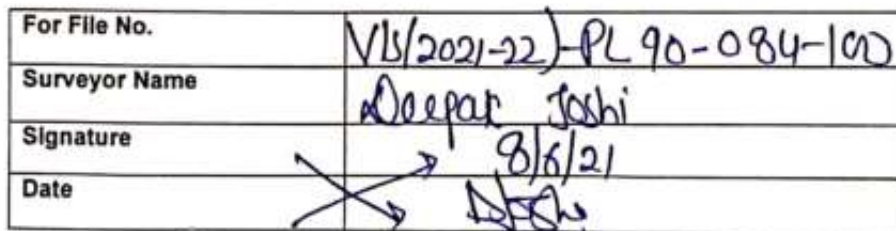 For File No. VIS(2021-22)-PL90-084-100
Surveyor Name Deepak Joshi
Signature 8/6/21
Date DJoshi